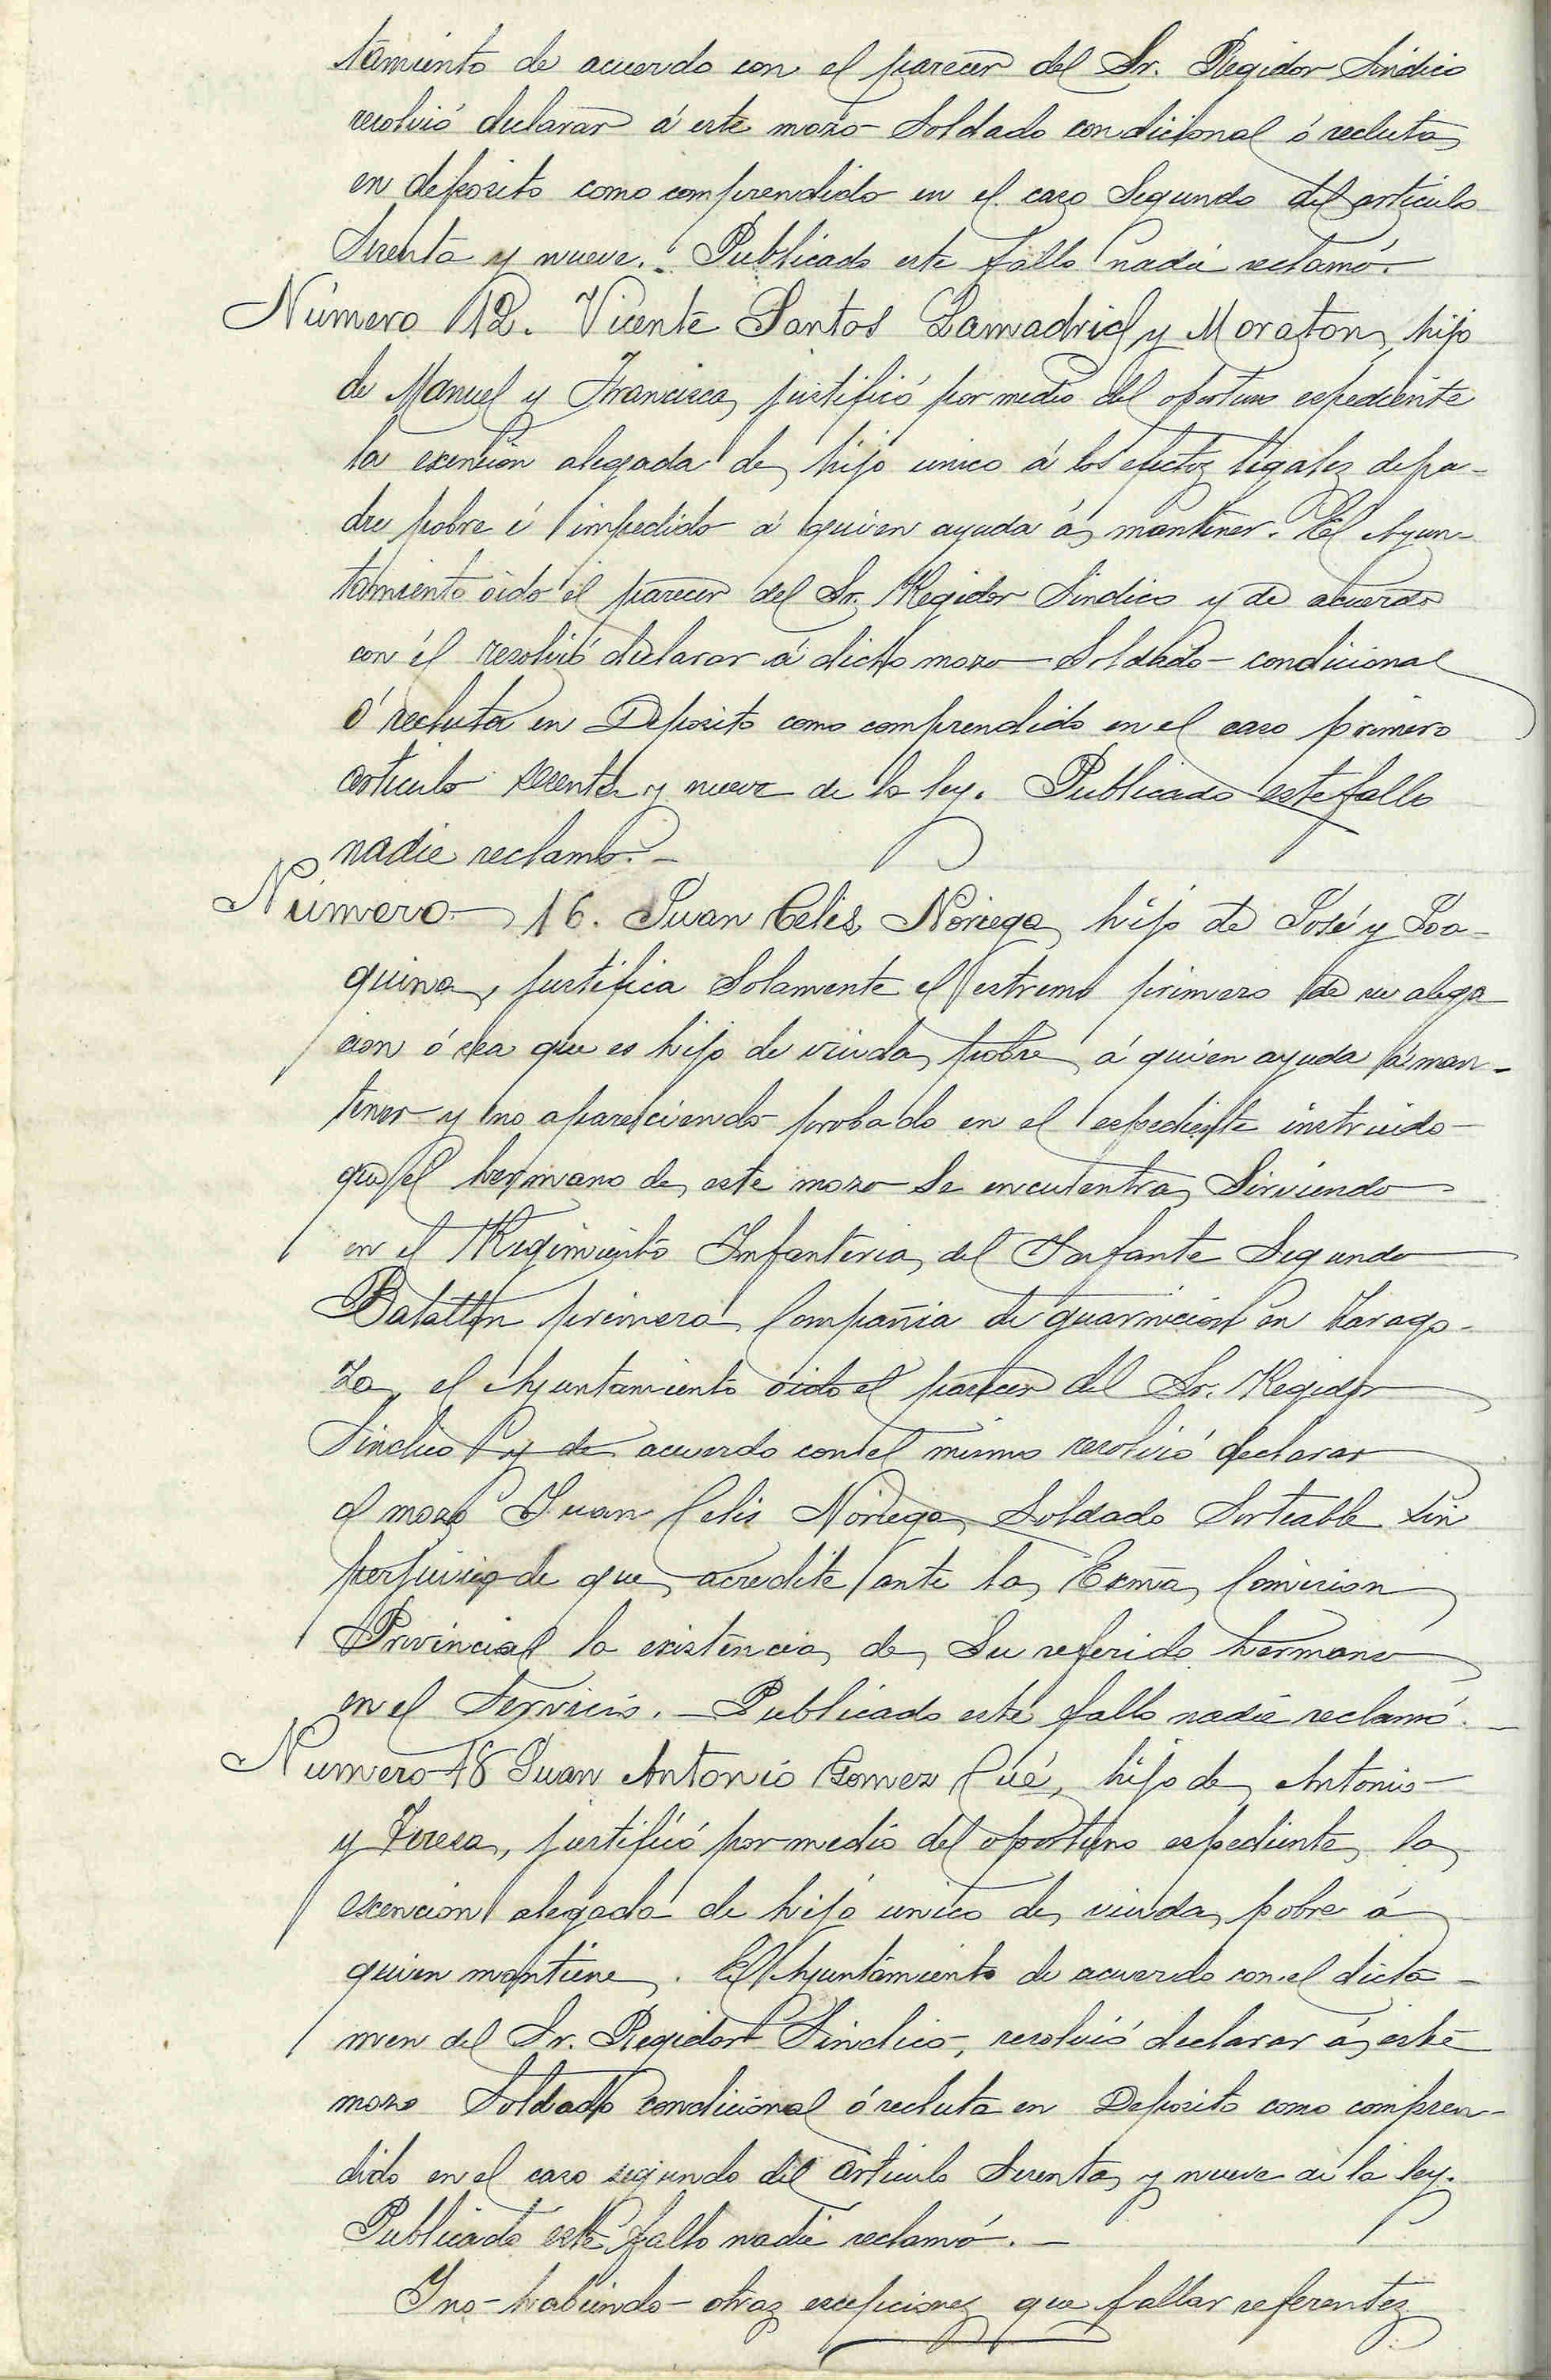 tamiento de acuerdo con el parecer del Sr. Regidor Sindico
resolvió declarar á este mozo Soldado condicional ó recluta
en deposito como comprendido en el caso Segundo del articulo
Sesenta y nueve. Publicado este fallo nadie reclamó.
Número 12. Vicente Santos Lamadrid y Moraton, hijo
de Manuel y Francisca, justificó por medio del oportuno espediente
la exencion alegada de hijo unico á los efectos legales de pa-
dre pobre é impedido á quien ayuda á mantener. El Ayun-
tamiento oido el parecer del Sr. Regidor Sindico y de acuerdo
con él resolvió declarar á dicho mozo Soldado condicional
ó recluta en Deposito como comprendido en el caso primero
articulo sesenta y nueve de la ley. Publicado este fallo
nadie reclamó.-
Número 16. Juan Celis Noriega, hijo de José y Joa-
quina, justifica Solamente el estremo primero de su alega
cion ó sea que es hijo de viuda pobre á quien ayuda á man-
tener y no apareciendo probado en el espediente instruido
que el hermano de este mozo Se encuentra Sirviendo
en el Regimiento Infanteria del Infante Segundo
Batallon primera Compañia de guarnicion en Zarago-
za, el Ayuntamiento oido el parecer del Sr. Regidor
Sindico y de acuerdo con el mismo resolvió declarar
al mozo Juan Celis Noriega Soldado Sorteable Sin
perjuicio de que acredite ante la Exma Comision
Provincial la existencia de Su referido hermano
en el Servicio. - Publicado este fallo nadie reclamó.-
Numero 18 Juan Antonio Gomez Cué, hijo de Antonio
y Teresa, justificó por medio del oportuno espediente la
exencion alegada de hijo unico de viuda pobre á
quien mantiene. El Ayuntamiento de acuerdo con el dicta-
men del Sr. Regidor Sindico, resolvió declarar á este
mozo Soldado condicional ó recluta en Deposito como compren-
dido en el caso segundo del articulo Sesenta y nueve de la ley.
Publicado este fallo nadie reclamó.-
Y no habiendo otras excepciones que fallar referentes